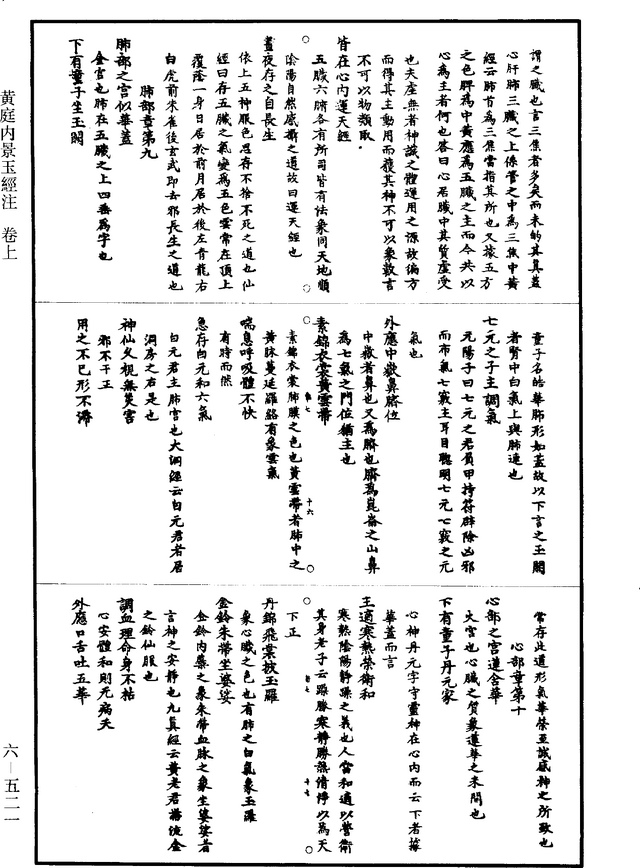 謂之臟也言三焦者多矣而未的其真蓋
心肝肺三臟之上係管之中為三焦中黃
經云肺首為三焦當指其所也又據五方
之色脾為中黃應為五臟之主而今共以
心為主者何也答曰心居臟中其質虛受
也夫虛無者神識之體運用之源故偏方
而得其主動用而獲其神不可以象數言
不可以物類取
皆在心內運天經
五臟六腑各有所司皆有法象同天地順
陰陽自然感攝之道故曰運天經也
晝夜存之自長生
依上五神服色思存不捨不死之道也仙
經曰存五臟之氣變為五色雲常在頂上
覆蔭一身日居於前月居於後左青龍右
白虎前朱雀後玄武即去邪長生之道也
肺部章第九
肺部之宮似華蓋
金宮也肺在五臟之上四垂為宇也
下有童子坐玉闕
童子名皓華肺形如蓋故以下言之玉闕
者腎中白氣上與肺連也
七元之子主調氣
元陽子曰七元之君負甲持符辟除凶邪
而布氣七竅主耳目聰明七元七竅之元
氣也
外應中嶽鼻臍位
中嶽者鼻也又為臍也臍為崑崙之山鼻
為七氣之門位猶主也
素錦衣裳黃雲帶
素錦衣裳肺膜之色也黃雲帶者肺中之
黃脉蔓延羅絡有象雲氣
喘息呼吸體不快
有時而然
急存白元和六氣
白元君主肺宮也大洞經云白元君者居
洞房之右是也
神仙久視無災害
邪不干正
用之不已形不滯
常存此道形氣華榮至誠感神之所致也
心部章第十
心部之宮蓮含華
火宮也心臟之質象蓮華之未開也
下有童子丹元家
心神丹元字守靈神在心內而云下者據
華蓋而言
主適寒熱榮衛和
寒熱陰陽靜躁之義也人當和適以營衛
其身老子云躁勝寒靜勝熱清淨以為天
下正
丹錦飛裳披玉羅
象心臟之色也有肺之白氣象玉羅
金鈴朱帶坐婆娑
金鈴內藥之象朱帶血脉之象坐婆娑者
言神之安靜也九真經云黃老君帶流金
之鈴仙服也
調血理命身不枯
心安體和則元病夭
外應口舌吐五華
黃庭內景玉經注　卷上
六－五二一